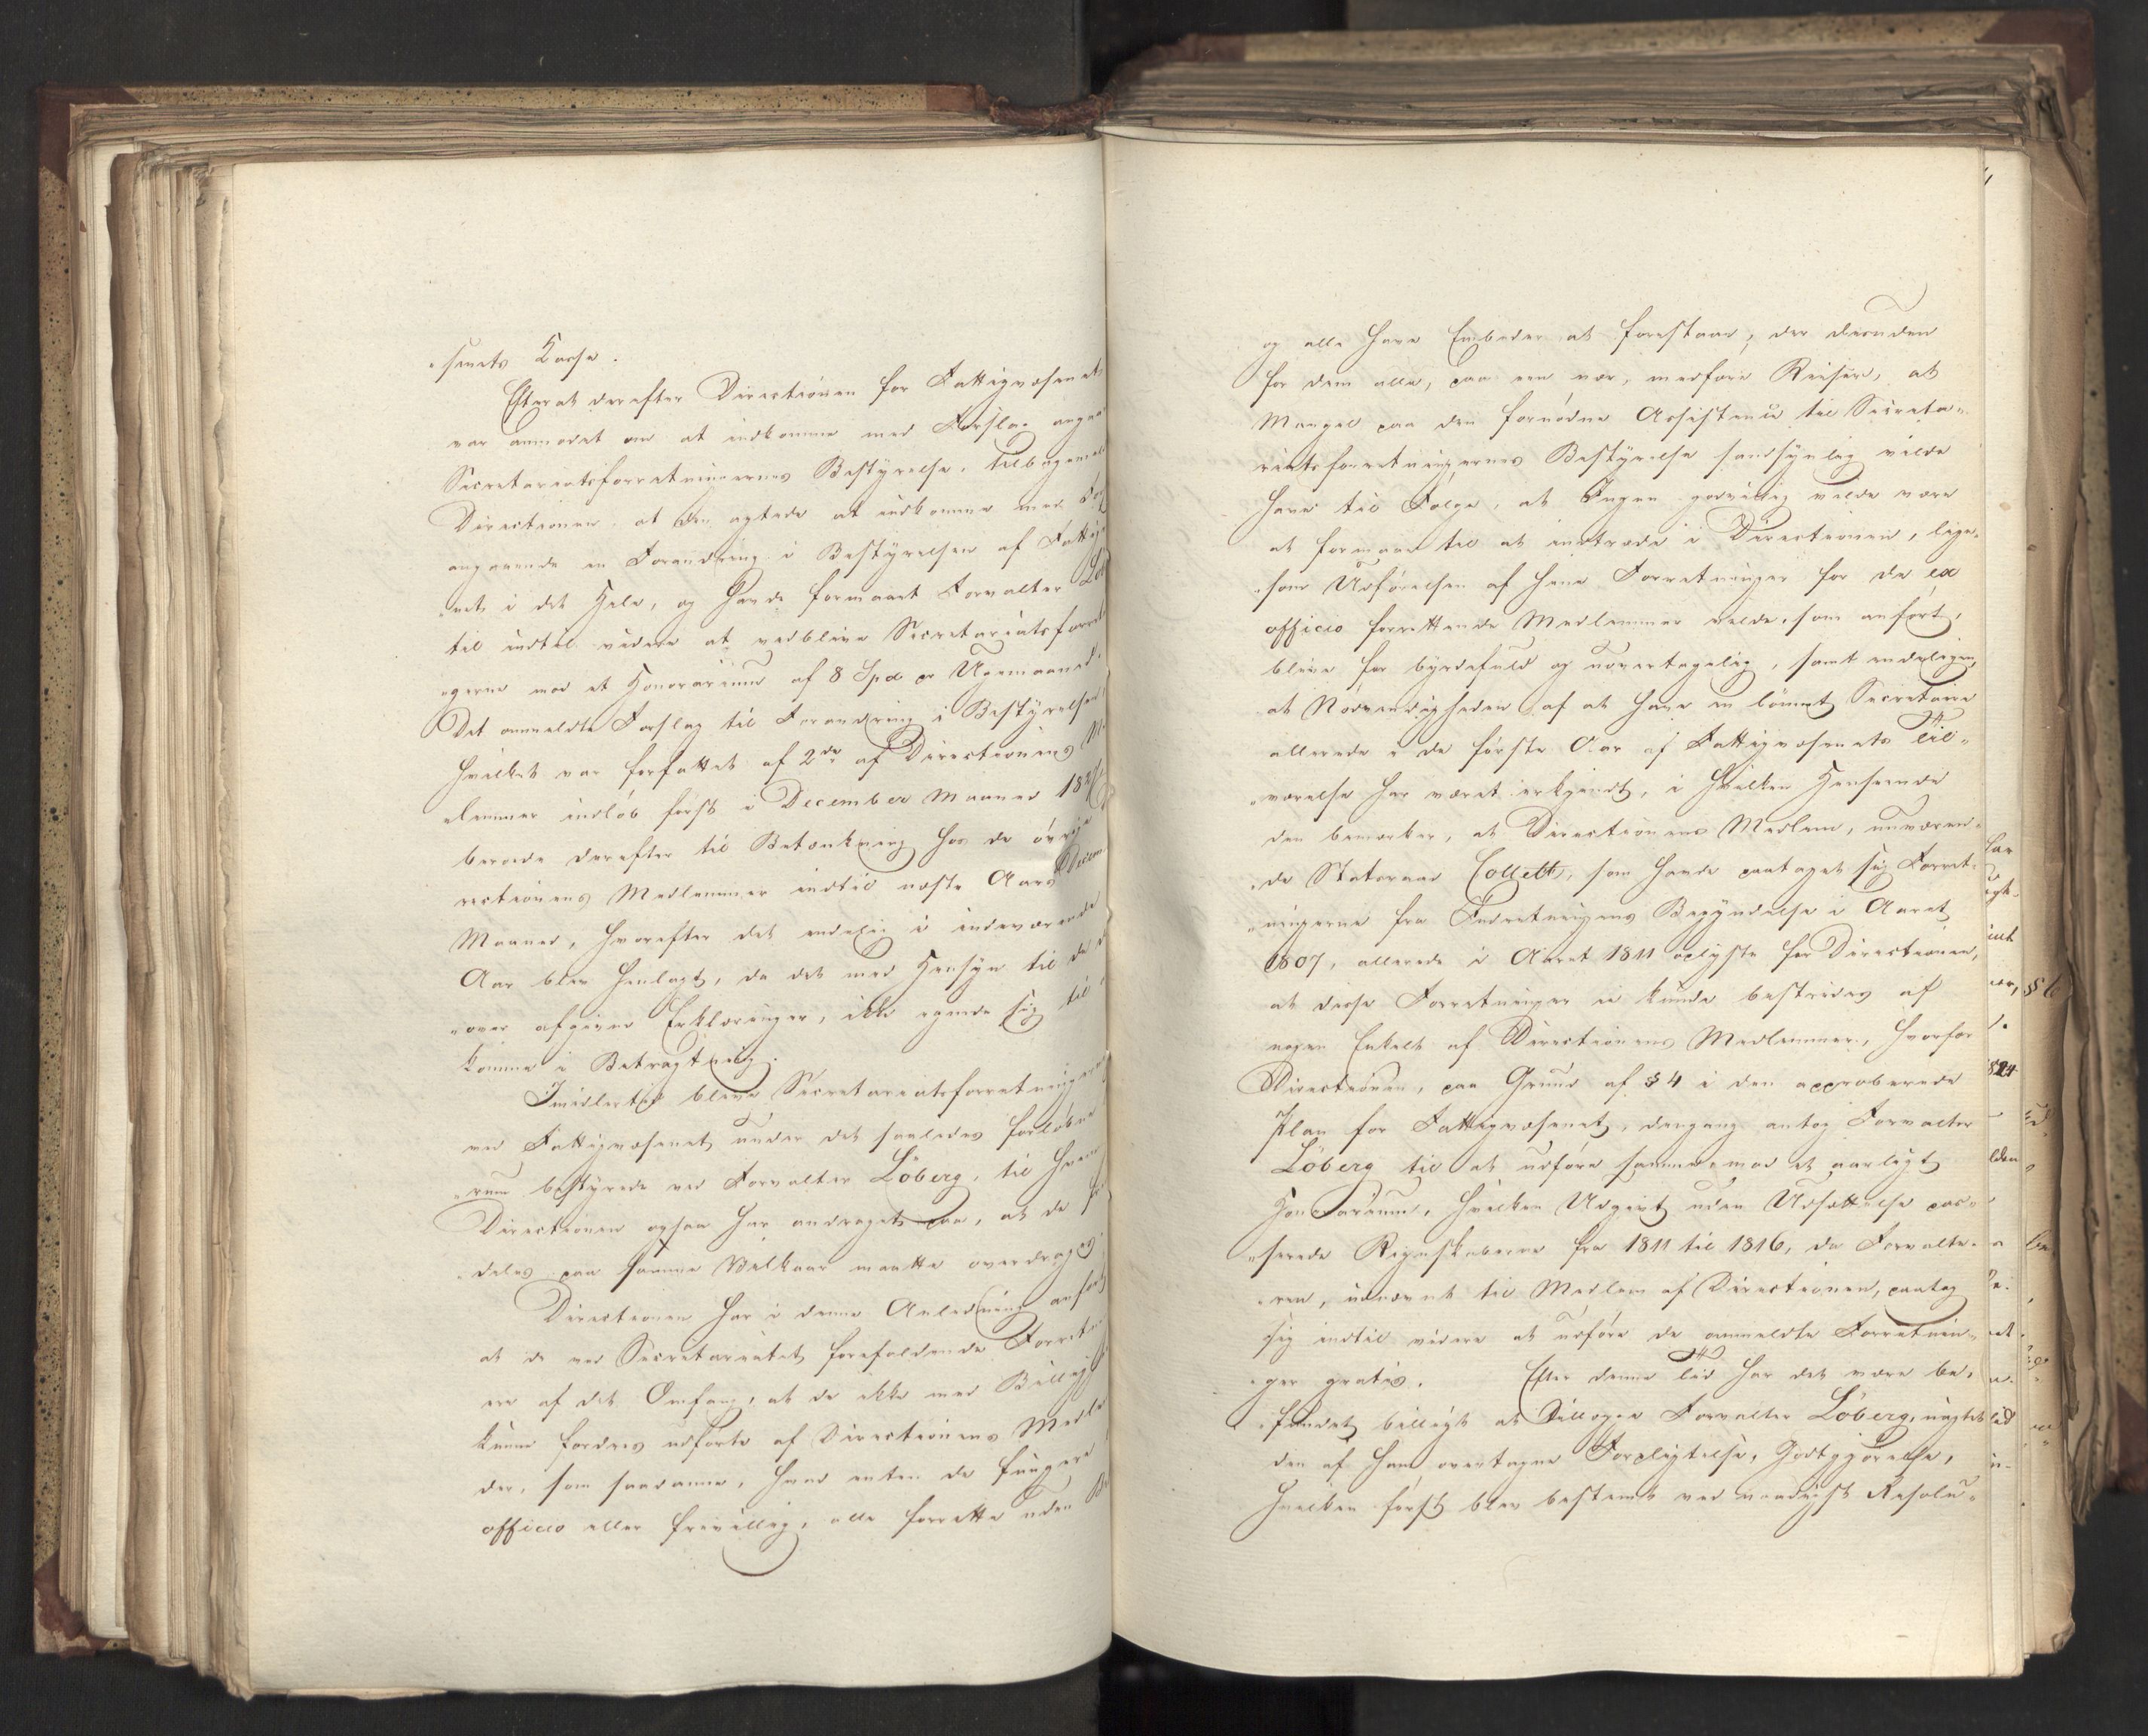 „senets Kasse.
Efterat derefter Directionen for Fattigvæsenet
var anmodet om at indkomme med Forslag angaa
Secretariatsforretningernes Bestyrelse, tilbagemel
Directionen, at den agtede at indkomme med
angaaende en Forandring i Bestyrelsen af Fattig
„net i det Hele, og havde formaaet Forvalter Lö
til indtil videre at vedblive Secretariatsforret
„gerne mod et Honorarium af 8 Spd pr Ugemaaned.
Det anmeldte Forslag til Forandring i Bestyrelsen,
hvilket var forfattet af 2de af Directionens M
lemmer indlöb först i December Maaned
beroede derefter til Betænkning hos de övrige
rectionens Medlemmer indtil næste Aars Decem
Maaned, hvorefter det endelig i indeværende
Aar blev henlagt, da det med Hensyn til de
„over afgivne Erklæringer, ikke egnede sig til
komme i Betragtning.
Imidlertid bleve Secretariatsforretningerne
ved Fattigvæsenet under det saaledes forlöbne
„rum bestyrede ved Forvalter Löberg, til hvem
Directionen ogsaa har andraget paa, at de
„deles paa samme Vilkaar maatte overdrages.
Directionen har i denne Anledning anfört
at de ved Secretariatet forefaldende Forretn
ere af det Omfang, at de ikke med Billigh
kunne fordres udförte af Directionens Medle
der, som saadanne, hvad enten de fungere
officio eller frivillig, alle forrette uden
og alle have Embeder at forestaae, der desuden
for dem alle, paa een nær, medføre Reiser, at
Mangel paa den fornødne Assistence til Secreta„
riatsforretningernes Bestyrelse sandsynlig vilde
have til Følge, at Ingen godvillig vilde være
at formaae til at indtræde i Directionen, lige„
„som Udførelsen af hine Forretninger for de ex
officio forrettende Medlemmer vilde, som anført,
blive for byrdefuld og uovertagelig, samt endeligen
at Nødvendigheden af at have en lönnet Secretaire
allerede i de første Aar af Fattigvæsenets Til„
„værelse har været erkjendt, i hvilken Henseende
den bemærker, at Directionens Medlem, nuværen„
„de Statsraad Collett, som havde paataget sig Forret„
„ningerne fra Indretningens Begyndelse i Aaret
1807, allerede i Aaret 1811 oplyste for Directionen,
at disse Forretninger ei kunde bestrides af
nogen Enkelt af Directionens Medlemmer, hvorfor
Directionen, paa Grund af § 4 i den approberede
Plan for Fattigvæsenet, dengang antog Forvalter
Löberg til at udføre samme, mod et aarligt
Honorarium, hvilken Udgivt uden Udsættelse pas„
„serede Regnskaberne fra 1811 til 1816, da Forvalte„
„ren, udnævnt til Medlem af Directionen, paatog
sig indtil videre at udføre de anmeldte Forretnin„
„ger gratis. Efter denne Tid har det være be„
„fundet billigt at tillægge Forvalter Löberg, uagtet
den af ham overtagne Forpligtelse, Godtgjørelse,
hvilken først blev bestemt ved naadigst Resolu„